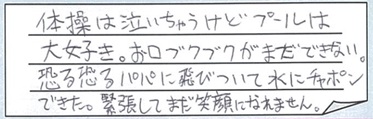 体操は泣いちゃうけどプールは
大好き。お口ブクブクがまだできない。
恐る恐るパパに飛びついて水にチャポン
できた。緊張してまだ笑顔になれません。